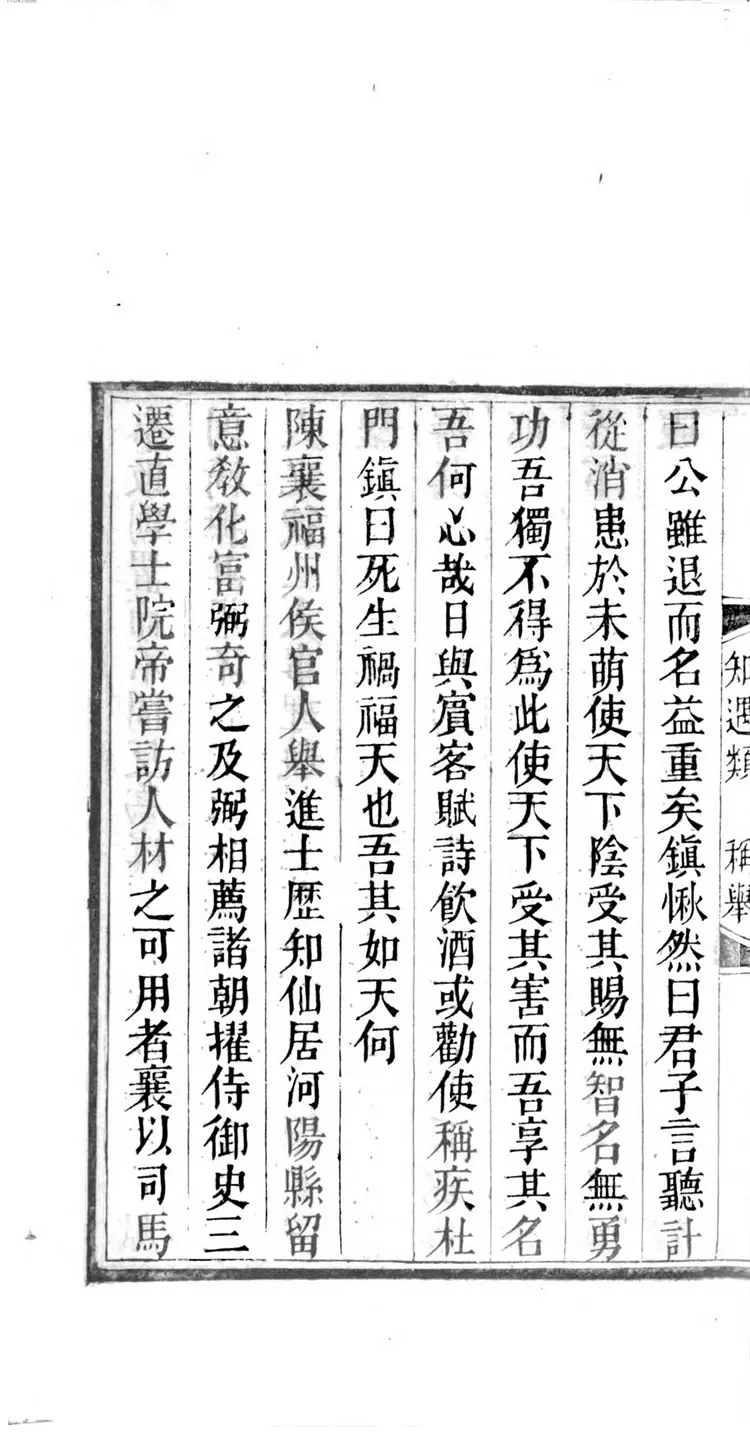 知遇類 稱舉
曰公雖退而名益重矣鎮愀然曰君子言聽計
從消患於未萌使天下陰受其賜無智名無勇
功吾獨不得爲此使天下受其害而吾享其名
吾何心哉日與賓客賦詩飲酒或勸使稱疾杜
門鎮曰死生禍福天也吾其如天何
陳襄福州侯官人舉進士歷知仙居河陽縣留
意教化富弼奇之及弼相薦諸朝擢侍御史三
遷直學士院帝嘗訪人材之可用者襄以司馬